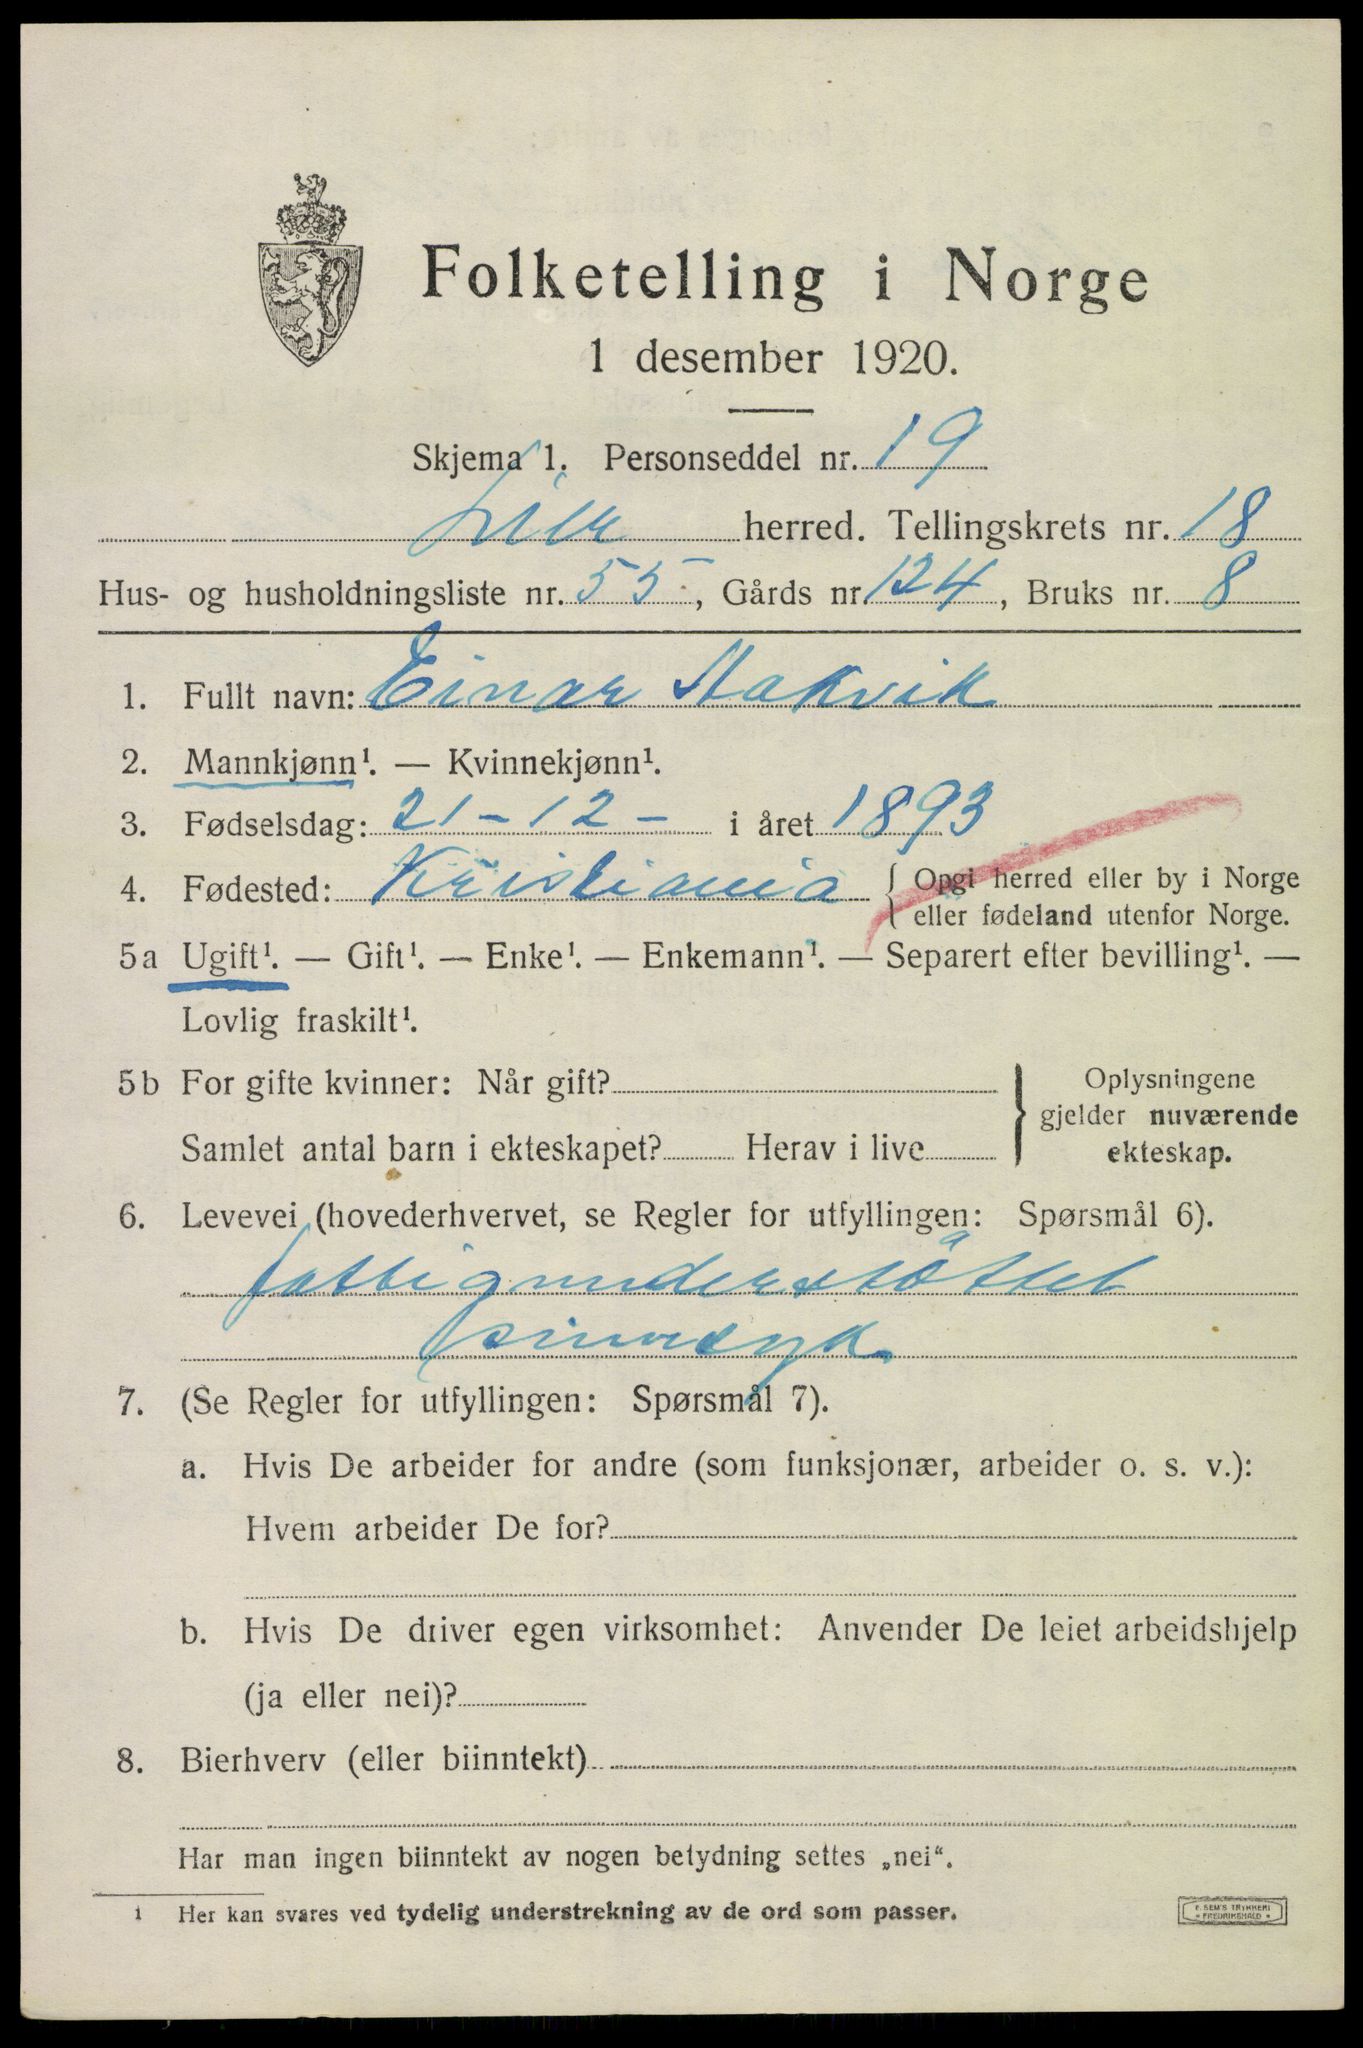 Folketelling i Norge
1 desember 1920.
Skjema 1. Personseddel nr. 19
Lier herred. Tellingskrets nr. 18
Hus- og husholdningsliste nr. 55, Gårds nr. 124, Bruks nr. 8
1. Fullt navn: Einar Aakvik
2. Mannkjønn¹. — Kvinnekjønn¹.
3. Fødselsdag: 21 - 12 - i året 1893
4. Fødested: Kristiania { Opgi herred eller by i Norge
eller fødeland utenfor Norge.
5a Ugift¹. — Gift¹. — Enke¹. — Enkemann¹. — Separert efter bevilling¹. —
Lovlig fraskilt¹.
5b For gifte kvinner: Når gift? } Oplysningene
gjelder nuværende
Samlet antal barn i ekteskapet? Herav i live ekteskap.
6. Levevei (hovederhvervet, se Regler for utfyllingen: Spørsmål 6).
fattigunderstöttet
sinnsyk
7. (Se Regler for utfyllingen: Spørsmål 7).
a. Hvis De arbeider for andre (som funksjonær, arbeider o. s. v.):
Hvem arbeider De for?
b. Hvis De driver egen virksomhet: Anvender De leiet arbeidshjelp
(ja eller nei)?
8. Bierhverv (eller biinntekt)
Har man ingen biinntekt av nogen betydning settes „nei“.
1 Her kan svares ved tydelig understrekning av de ord som passer.
E. SEM'S TRYKKERI
• FREDRIKSHALD •